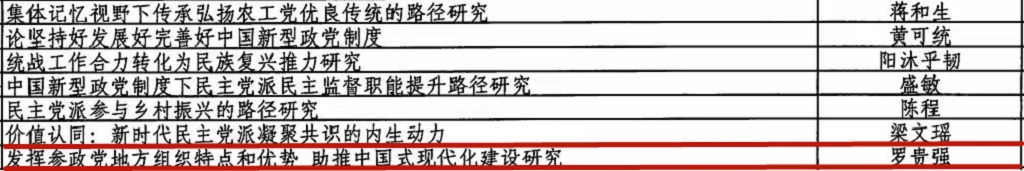 集体记忆视野下传承弘扬农工党优良传统的路径研究 蒋和生
论坚持好发展好完善好中国新型政党制度 黄可统
统战工作合力转化为民族复兴推力研究 阳沐乎韧
中国新型政党制度下民主党派民主监督职能提升路径研究 盛敏
民主党派参与乡村振兴的路径研究 陈程
价值认同：新时代民主党派凝聚共识的内生动力 梁文瑶
发挥参政党地方组织特点和优势 助推中国式现代化建设研究 罗贵强